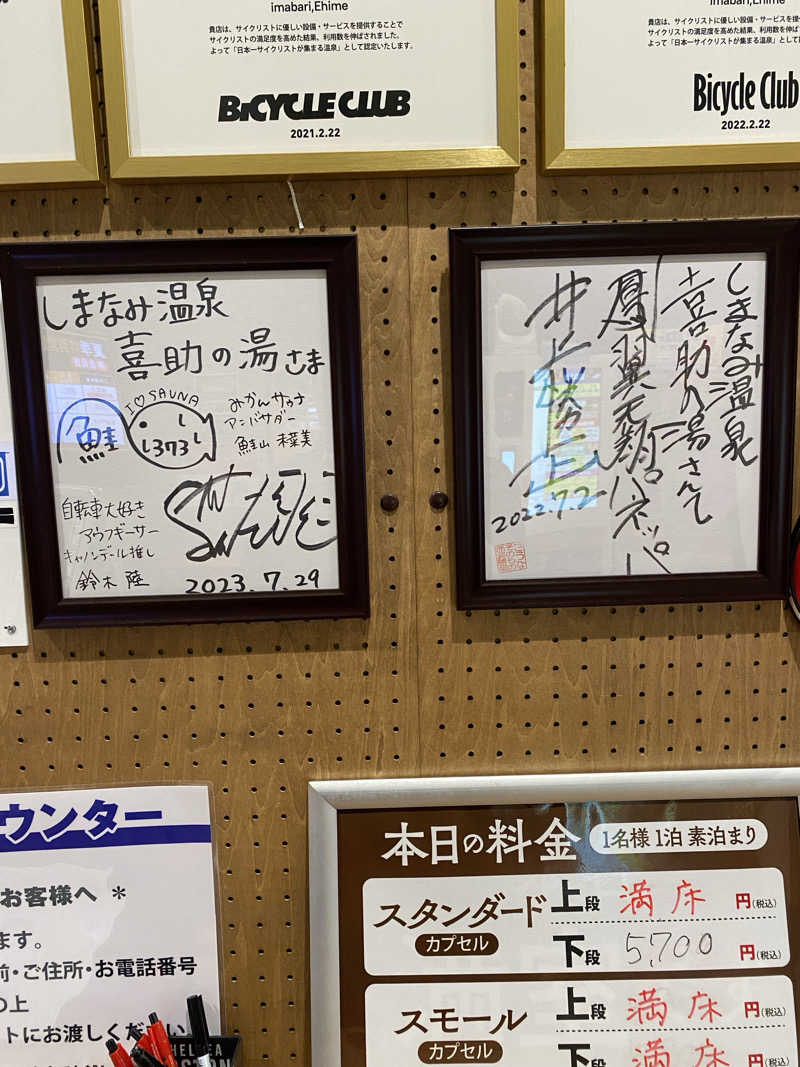 imabari,Ehime
貴店は、サイクリストに優しい設備・サービスを提供することで
サイクリストの満足度を高めた結果、利用数を伸ばされました。
よって「日本一サイクリストが集まる温泉」として認定いたします。
BiCYCLE CLUB
2021.2.22
imabari,Ehime
貴店は、サイクリストに優しい設備・サービスを提供する
サイクリストの満足度を高めた結果、利用数を伸ばされま
よって「日本一サイクリストが集まる温泉」として認定
Bicycle Club
2022.2.22
しまなみ温泉
喜助の湯さま
I♡SAUNA
鮭
1373
みかんサウナ
アンバサダー
鮭山 未菜美
自転車大好き
アウフギーサー
キャノンデール推し
鈴木 陸
2023.7.29
しまなみ温泉
喜助の湯さんて
2022.7.2
ウンター
お客様へ *
ます。
前・ご住所・お電話番号
の上
トにお渡しください
本日の料金
1名様 1泊 素泊まり
スタンダード
カプセル
上段 満床 円(税込)
下段 5,700 円(税込)
スモール
カプセル
上段 満床 円(税込)
下段 満床 円(税込)